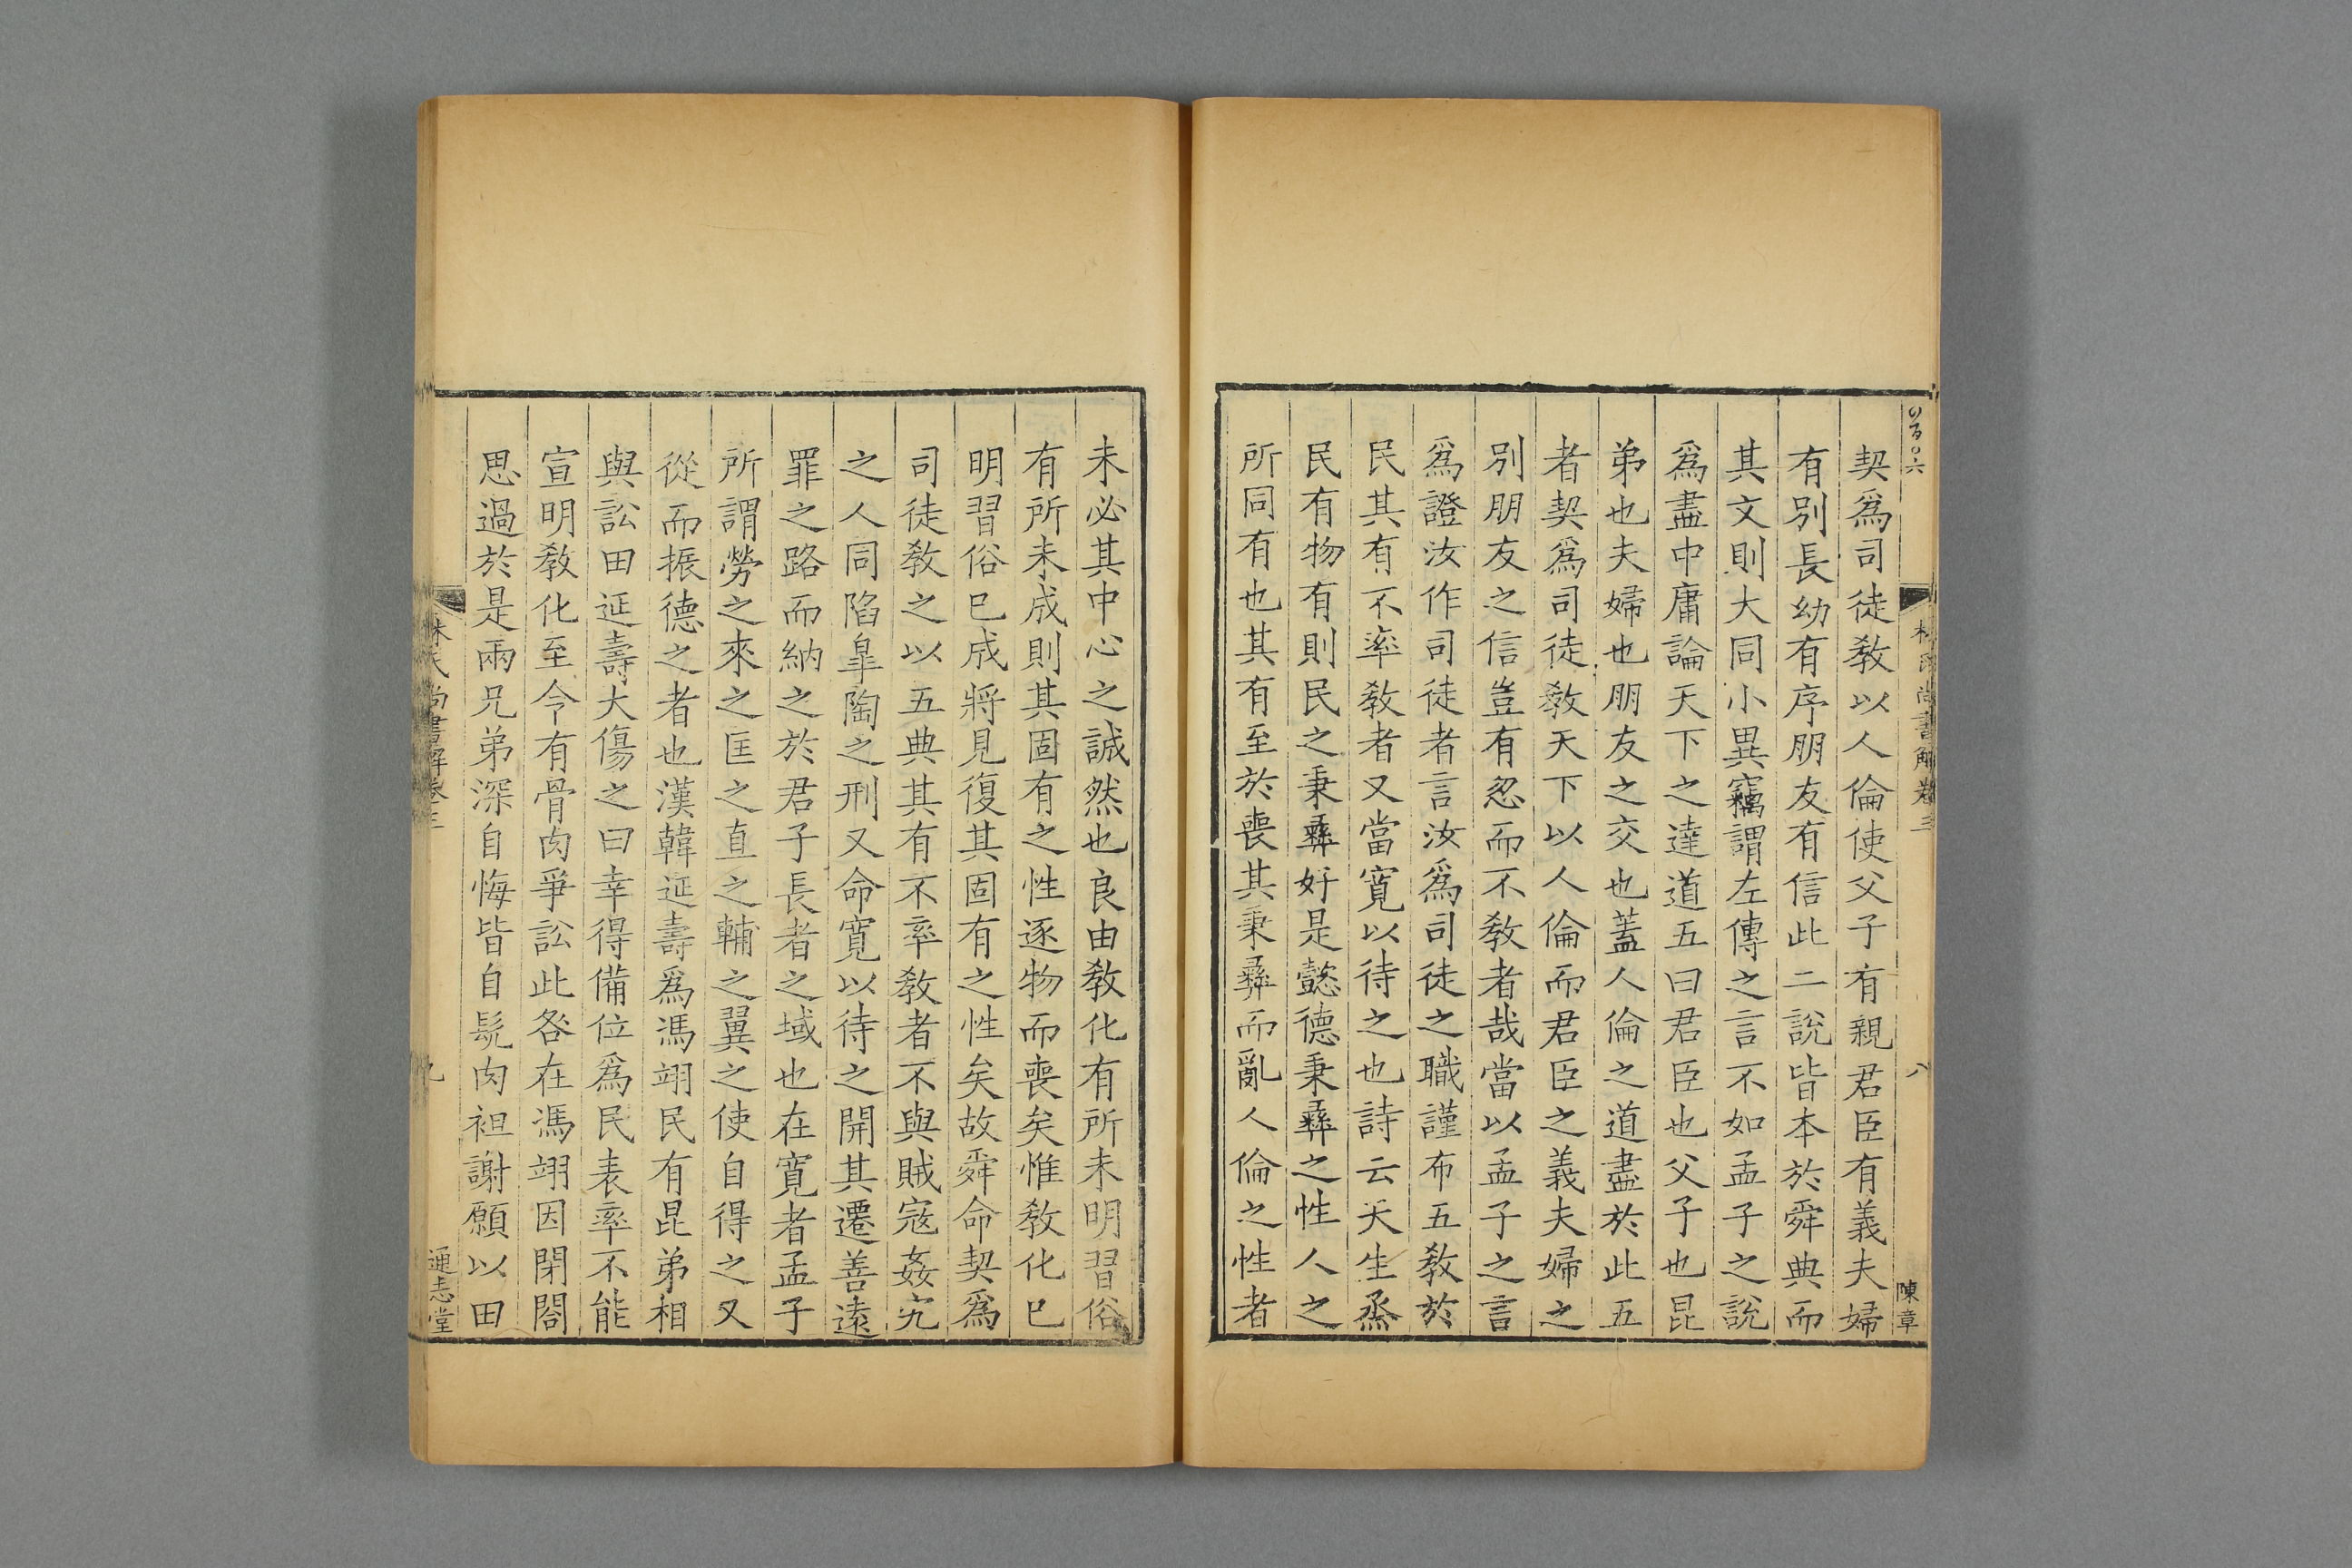 林氏尚書解卷三
八
陳章
契爲司徒敎以人倫使父子有親君臣有義夫婦
有別長幼有序朋友有信此二說皆本於舜典而
其文則大同小異竊謂左傳之言不如孟子之說
爲盡中庸論天下之達道五曰君臣也父子也昆
弟也夫婦也朋友之交也蓋人倫之道盡於此五
者契爲司徒敎天下以人倫而君臣之義夫婦之
別朋友之信豈有忽而不敎者哉當以孟子之言
爲證汝作司徒者言汝爲司徒之職謹布五敎於
民其有不率敎者又當寬以待之也詩云天生烝
民有物有則民之秉彞好是懿德秉彞之性人之
所同有也其有至於喪其秉彞而亂人倫之性者
未必其中心之誠然也良由敎化有所未明習俗
有所未成則其固有之性逐物而喪矣惟敎化已
明習俗已成將見復其固有之性矣故舜命契爲
司徒敎之以五典其有不率敎者不與賊寇姦宄
之人同陷臯陶之刑又命寬以待之開其遷善遠
罪之路而納之於君子長者之域也在寬者孟子
所謂勞之來之匡之直之輔之翼之使自得之又
從而振德之者也漢韓延壽爲馮翊民有昆弟相
與訟田延壽大傷之曰幸得備位爲民表率不能
宣明敎化至令有骨肉爭訟此咎在馮翊因閉閤
思過於是兩兄弟深自悔皆自髡肉袒謝願以田
林氏尚書解卷三
九
通志堂